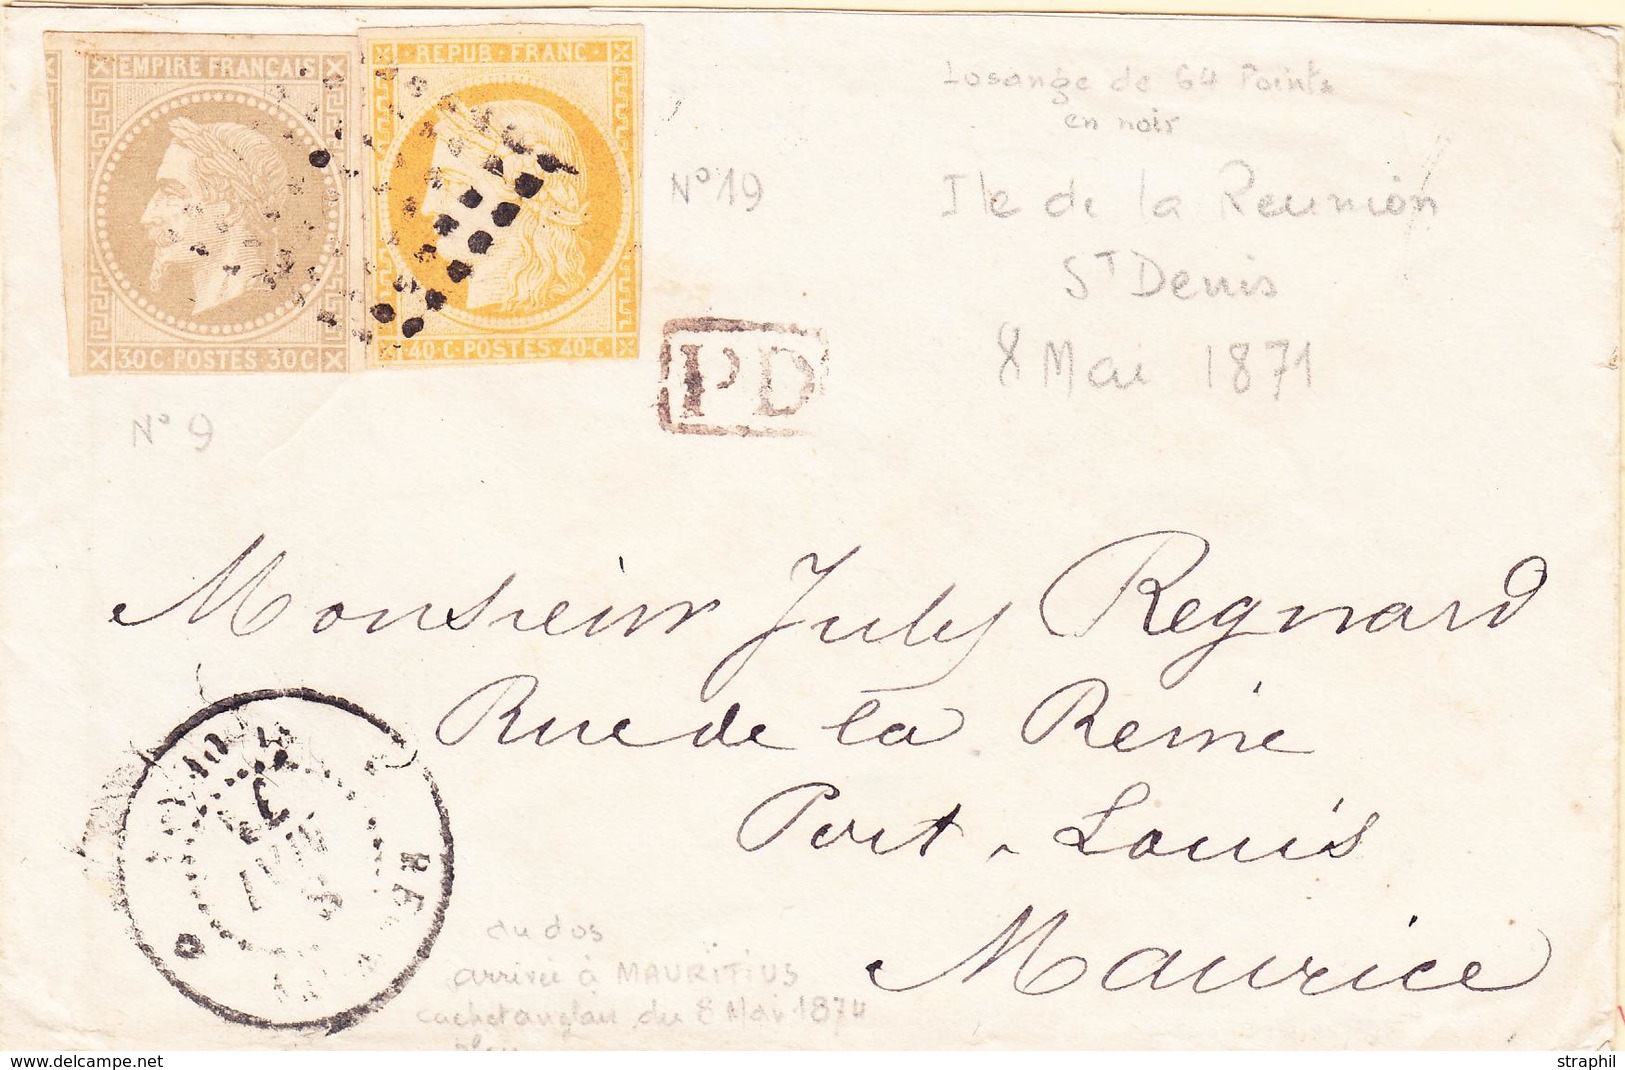 EMPIRE FRANCAIS
30C·POSTES·30C
REPUB·FRANC·
40·C·POSTES·40·C
N° 9
N° 19
PD
Losange de 64 Points
en noir
Ile de la Reunion
ST Denis
8 Mai 1871
Monsieur July Regnard
Rue de la Reine
Port-Louis
Maurice
au dos
arrivée à MAURITIUS
cachet anglais du 8 Mai 1874
delcampe.net
straphil